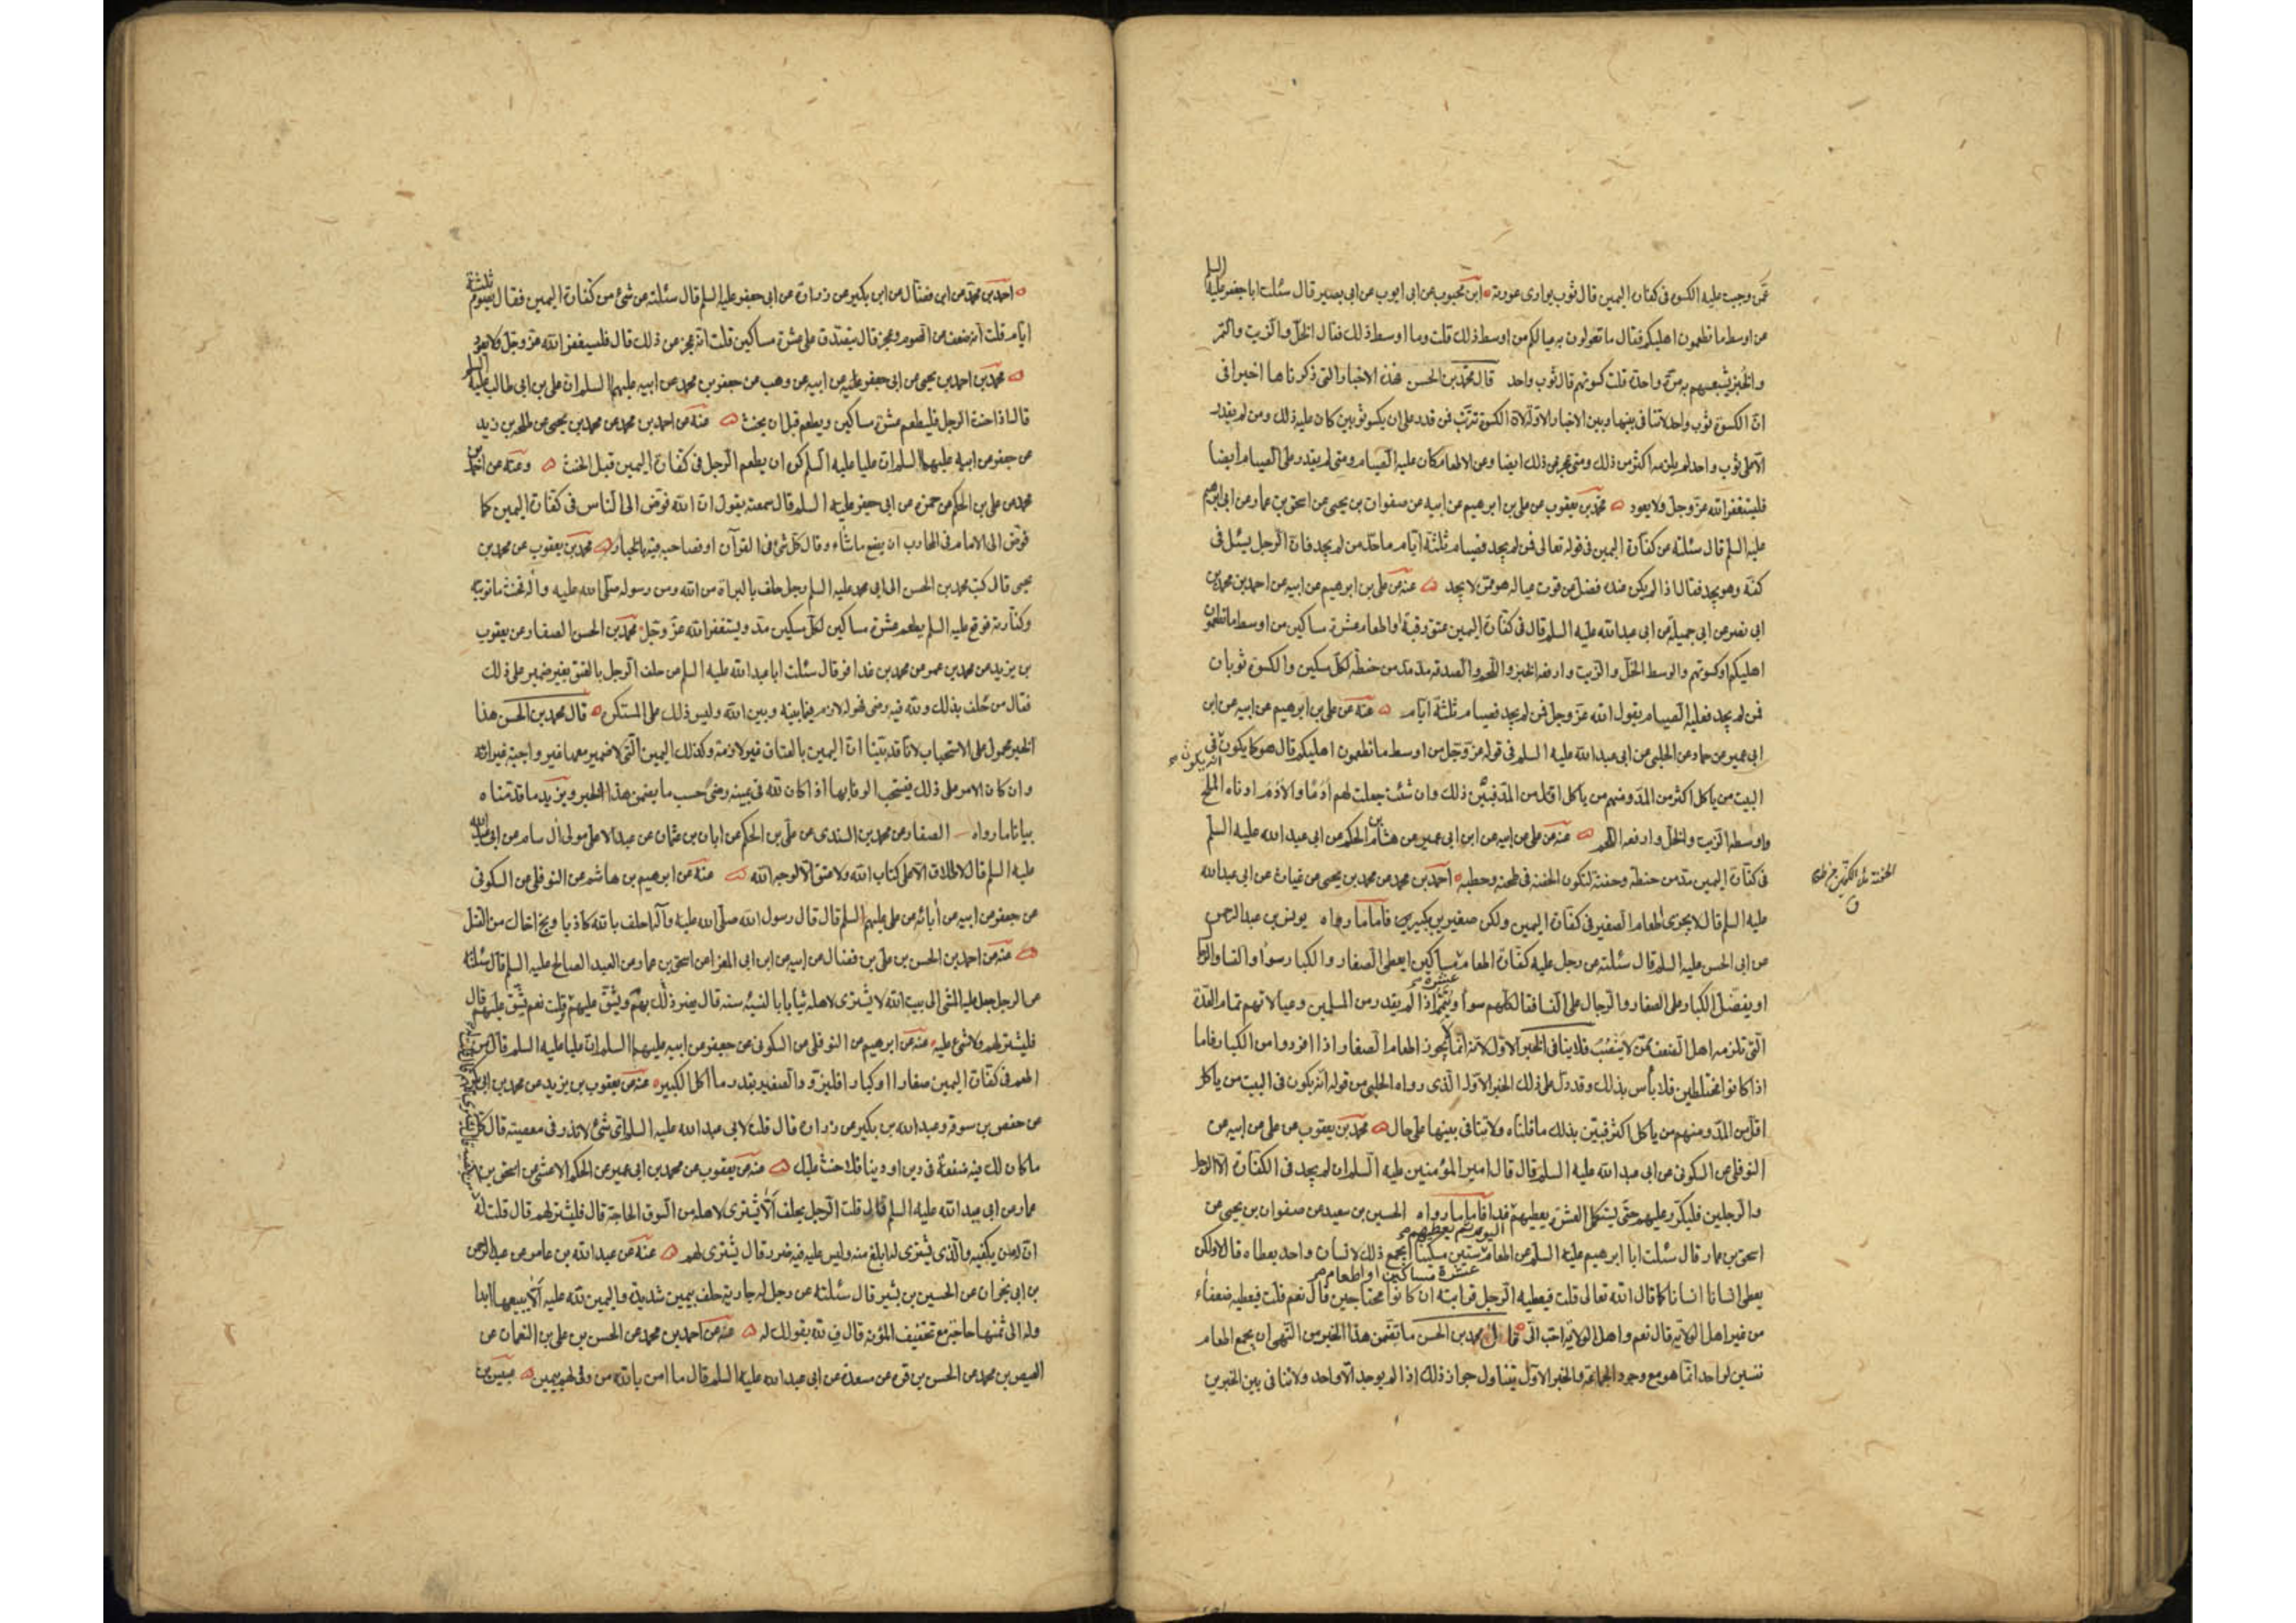 عمّن وجب عليه الكسوة فى كفارة اليمين قال ثوب يوارى عورته ابن محبوب عن ابى ايوب عن ابى بصير قال سئلت ابا جعفر عليه السلم
من اوسط ما تطعمون اهليكم فقال ما تقولون به عيالكم من اوسط ذلك قلت وما اوسط ذلك فقال الخلّ والزيت والتمر
والخبز يشبعهم به مرّة واحدة قلت كسوتهم قال ثوب واحد قال محمّد بن الحسن هذه الاخبار التى ذكرناها اخيرا فى
انّ الكسوة ثوب واحد لا تنافى بينها وبين الاخبار الاوّلة لانّ الكسوة تترتّب فمن قدر على ان يكسو ثوبين كان عليه ذلك ومن لم يقدر
الّا على ثوب واحد لم يلزمه اكثر من ذلك ومتى عجز عن ذلك ايضا وعن الاطعام كان عليه الصيام ومتى لم يقدر على الصيام ايضا
فليستغفر الله عزّ وجلّ ولا يعود محمّد بن يعقوب عن على بن ابرهيم عن ابيه عن صفوان بن يحيى عن اسحق بن عمار عن ابى ابرهيم
عليه السلم قال سئلته عن كفّارة اليمين فى قوله تعالى فمن لم يجد فصيام ثلثة ايّام ما حدّ من لم يجد فانّ الرجل يسئل فى
كفّه وهو يجد فقال اذا لم يكن عنده فضل عن قوت عياله هو ممّن لا يجد عنه عن على بن ابرهيم عن ابيه عن احمد بن محمد بن
ابى نصر عن ابى جميلة عن ابى عبد الله عليه السلم قال فى كفّارة اليمين عتق رقبة او اطعام عشرة مساكين من اوسط ما تطعمون
اهليكم او كسوتهم والوسط الخلّ والزيت وارفعه الخبز واللّحم والصدقة مدّ مدّ من حنطة لكلّ مسكين والكسوة ثوبان
فمن لم يجد فعليه الصيام يقول الله عزّ وجلّ فمن لم يجد فصيام ثلثة ايّام عنه عن على بن ابرهيم عن ابيه عن ابن
ابى عمير عن حماد عن الحلبى عن ابى عبد الله عليه السلم فى قوله عزّ وجلّ من اوسط ما تطعمون اهليكم قال هو كما يكون فى
انه يكون
البيت من ياكل اكثر من المدّ ومنهم من ياكل اقلّ من المدّ فبيّن ذلك وان شئت جعلت لهم أُدُمًا والأُدُم ادناه الملح
واوسطه الزيت والخلّ وارفعه اللّحم عنه عن على عن ابيه عن ابن ابى عمير عن هشام بن الحكم عن ابى عبد الله عليه السلم
فى كفّارة اليمين مدّ من حنطة وحفنة لتكون الحفنة فى طحنه وحطبه احمد بن محمد عن محمد بن يحيى عن غياث عن ابى عبد الله
الحفنة ملء الكفّين
عليه السلم قال لا يجزى اطعام الصغير فى كفّارة اليمين ولكن صغيرين بكبير فأمّا ما رواه يونس بن عبد الرحمن
عن ابى الحسن عليه السلم قال سئلته عن رجل عليه كفّارة اطعام عشرة مساكين ايعطى الصغار والكبار سواء والنساء والرجال
او يفضّل الكبار على الصغار والرجال على النساء فقال كلّهم سواء ويتمّم اذا لم يقدر من المسلمين وعيالاتهم تمام العدّة
الّتى تلزمه اهل الضعف ممّن لا ينصب فلا ينافى الخبر الاوّل لانه انّما لا يجوز اطعام الصغار اذا افردوا من الكبار فاما
اذا كانوا مختلطين فلا بأس بذلك وقد دلّ على ذلك الخبر الاوّل الّذى رواه الحلبى من قوله انه يكون فى البيت من ياكل
اقلّ من المدّ ومنهم من ياكل اكثر فبيّن بذلك ما قلناه ولا تنافى بينها على حال محمّد بن يعقوب عن على عن ابيه عن
النوفلى عن السكونى عن ابى عبد الله عليه السلم قال قال امير المؤمنين عليه السلم ان لم يجد فى الكفّارة الّا الرجل
والرجلين فليكرّر عليهم حتّى يستكمل العشرة يعطيهم اليوم ثم يعطيهم غدا فأمّا ما رواه الحسين بن سعيد عن صفوان بن يحيى عن
اسحق بن عمار قال سئلت ابا ابرهيم عليه السلم عن اطعام عشرة مساكين او اطعام ستين مسكينا ايجمع ذلك لانسان واحد يعطاه قال لا ولكن
يعطى انسانا انسانا كما قال الله تعالى قلت فيعطيه الرجل قرابته ان كانوا محتاجين قال نعم قلت فيعطيه ضعفاء
من غير اهل الولاية قال نعم واهل الولاية احبّ الىّ قال محمد بن الحسن ما تضمّن هذا الخبر من النّهى ان يجمع اطعام
نفسين لواحد انّما هو مع وجود الجماعة والخبر الاوّل يتناول جواز ذلك اذا لم يوجد الّا واحد ولا تنافى بين الخبرين
احمد بن محمّد عن ابن فضّال عن ابن بكير عن زرارة عن ابى جعفر عليه السلم قال سئلته عن شئ من كفّارة اليمين فقال يصوم ثلثة
ايّام قلت انه ضعف عن الصوم وعجز قال يتصدّق على عشرة مساكين قلت انه عجز عن ذلك قال فليستغفر الله عزّ وجلّ ولا يعود
محمّد بن احمد بن يحيى عن ابى جعفر عن ابيه عن وهب عن جعفر بن محمد عن ابيه عليهما السلم ان على بن ابى طالب عليه السلم
قال اذا حنث الرجل فليطعم عشرة مساكين ويطعم قبل ان يحنث عنه عن احمد بن محمد عن محمد بن يحيى عن طلحة بن زيد
عن جعفر عن ابيه عليهما السلم ان عليا عليه السلم كره ان يطعم الرجل فى كفّارة اليمين قبل الحنث وعنه عن احمد بن
محمد عن على بن الحكم عن حمزه عن ابى جعفر عليه السلم قال سمعته يقول ان الله فوّض الى النّاس فى كفّارة اليمين كما
فوّض الى الامام فى المحارب ان يصنع ما شاء وقال كلّ شئ فى القرآن او فصاحبه فيه بالخيار محمّد بن يعقوب عن محمد بن
يحيى قال كتب محمد بن الحسن الى ابى محمد عليه السلم رجل حلف بالبراءة من الله ومن رسوله صلّى الله عليه وآله فحنث ما توبته
وكفّارته فوقّع عليه السلم يطعم عشرة مساكين لكلّ مسكين مدّ ويستغفر الله عزّ وجلّ محمّد بن الحسن الصفار عن يعقوب
بن يزيد عن محمد بن عمر عن محمد بن عذافر قال سئلت ابا عبد الله عليه السلم عن حلف الرجل بالعتق بغير ضمير على ذلك
فقال من حلف بذلك ولله فيه رضى فهو له لازم فيما بينه وبين الله وليس ذلك على المستكره قال محمّد بن الحسن هذا
الخبر محمول على الاستحباب لانّا قد بيّنا انّ اليمين بالعتاق غير لازمة وكذلك اليمين الّتى لا ضمير معها غير واجبة غير انّه
وان كان الامر على ذلك يستحب الوفاء بها اذا كان لله فى يمينه رضىً حسب ما يضمن هذا الخبر ويزيد ما قدّمناه
بيانا ما رواه الصفار عن محمد بن السندى عن على بن الحكم عن ابان بن عثمان عن عبد الاعلى مولى آل سام عن ابى عبد الله
عليه السلم قال لا طلاق الّا على كتاب الله ولا عتق الّا لوجه الله عنه عن ابرهيم بن هاشم عن النوفلى عن السكونى
عن جعفر عن ابيه عن آبائه عن على عليهم السلم قال قال رسول الله صلّى الله عليه وآله اذا حلف بالله كاذبا ونجّ اخاك من القتل
عنه عن احمد بن الحسن بن على بن فضال عن ابيه عن ابن ابى المغرا عن اسحق بن عمار عن العبد الصالح عليه السلم قال سئلته
عن الرجل جعل عليه المشى الى بيت الله لا يشترى لاهله ثيابا بالنسيئة سنة قال يضرّ ذلك بهم ويشقّ عليهم قلت نعم يشّق عليهم قال
فليشتر لهم ولا شئ عليه عنه عن ابرهيم عن النوفلى عن السكونى عن جعفر عن ابيه عليهما السلم انّ عليا عليه السلم قال من
اطعم فى كفّارة اليمين صغارا او كبارا فليزوّد الصغير بقدر ما أكل الكبير عنه عن يعقوب بن يزيد عن محمد بن ابى عمير
عن حفص بن سوقة وعبد الله بن بكير عن زرارة قال قلت لابى عبد الله عليه السلم اىّ شئ لا نذر فى معصيته قال كلّ
ما كان لك فيه منفعة فى دين او دنيا فلا حنث عليك عنه عن يعقوب عن محمد بن ابى عمير عن الحكم الاعشى عن اسحق بن
عمار عن ابى عبد الله عليه السلم قال قلت الرّجل يحلف الّا يشترى لاهله من السوق الحاجة قال فليشتر لهم قال قلت له
انّ له من يكفيه والّذى يشترى له ابلغ منه وليس عليه فيه ضرر قال يشترى لهم عنه عن عبد الله بن عامر عن عبد الرحمن
بن ابى نجران عن الحسين بن بشير قال سئلته عن رجل له جارية حلف بيمين شديدة واليمين لله عليه الّا يبيعها ابدا
وله الى ثمنها حاجة مع تخفيف المؤنة قال فِ لله بقولك له عنه عن احمد بن محمد عن الحسن بن على بن النعمان عن
الهيصم بن محمد عن الحسن بن قره عن مسعدة عن ابى عبد الله عليه السلم قال ما امن بالله من وفى لهم بيمين